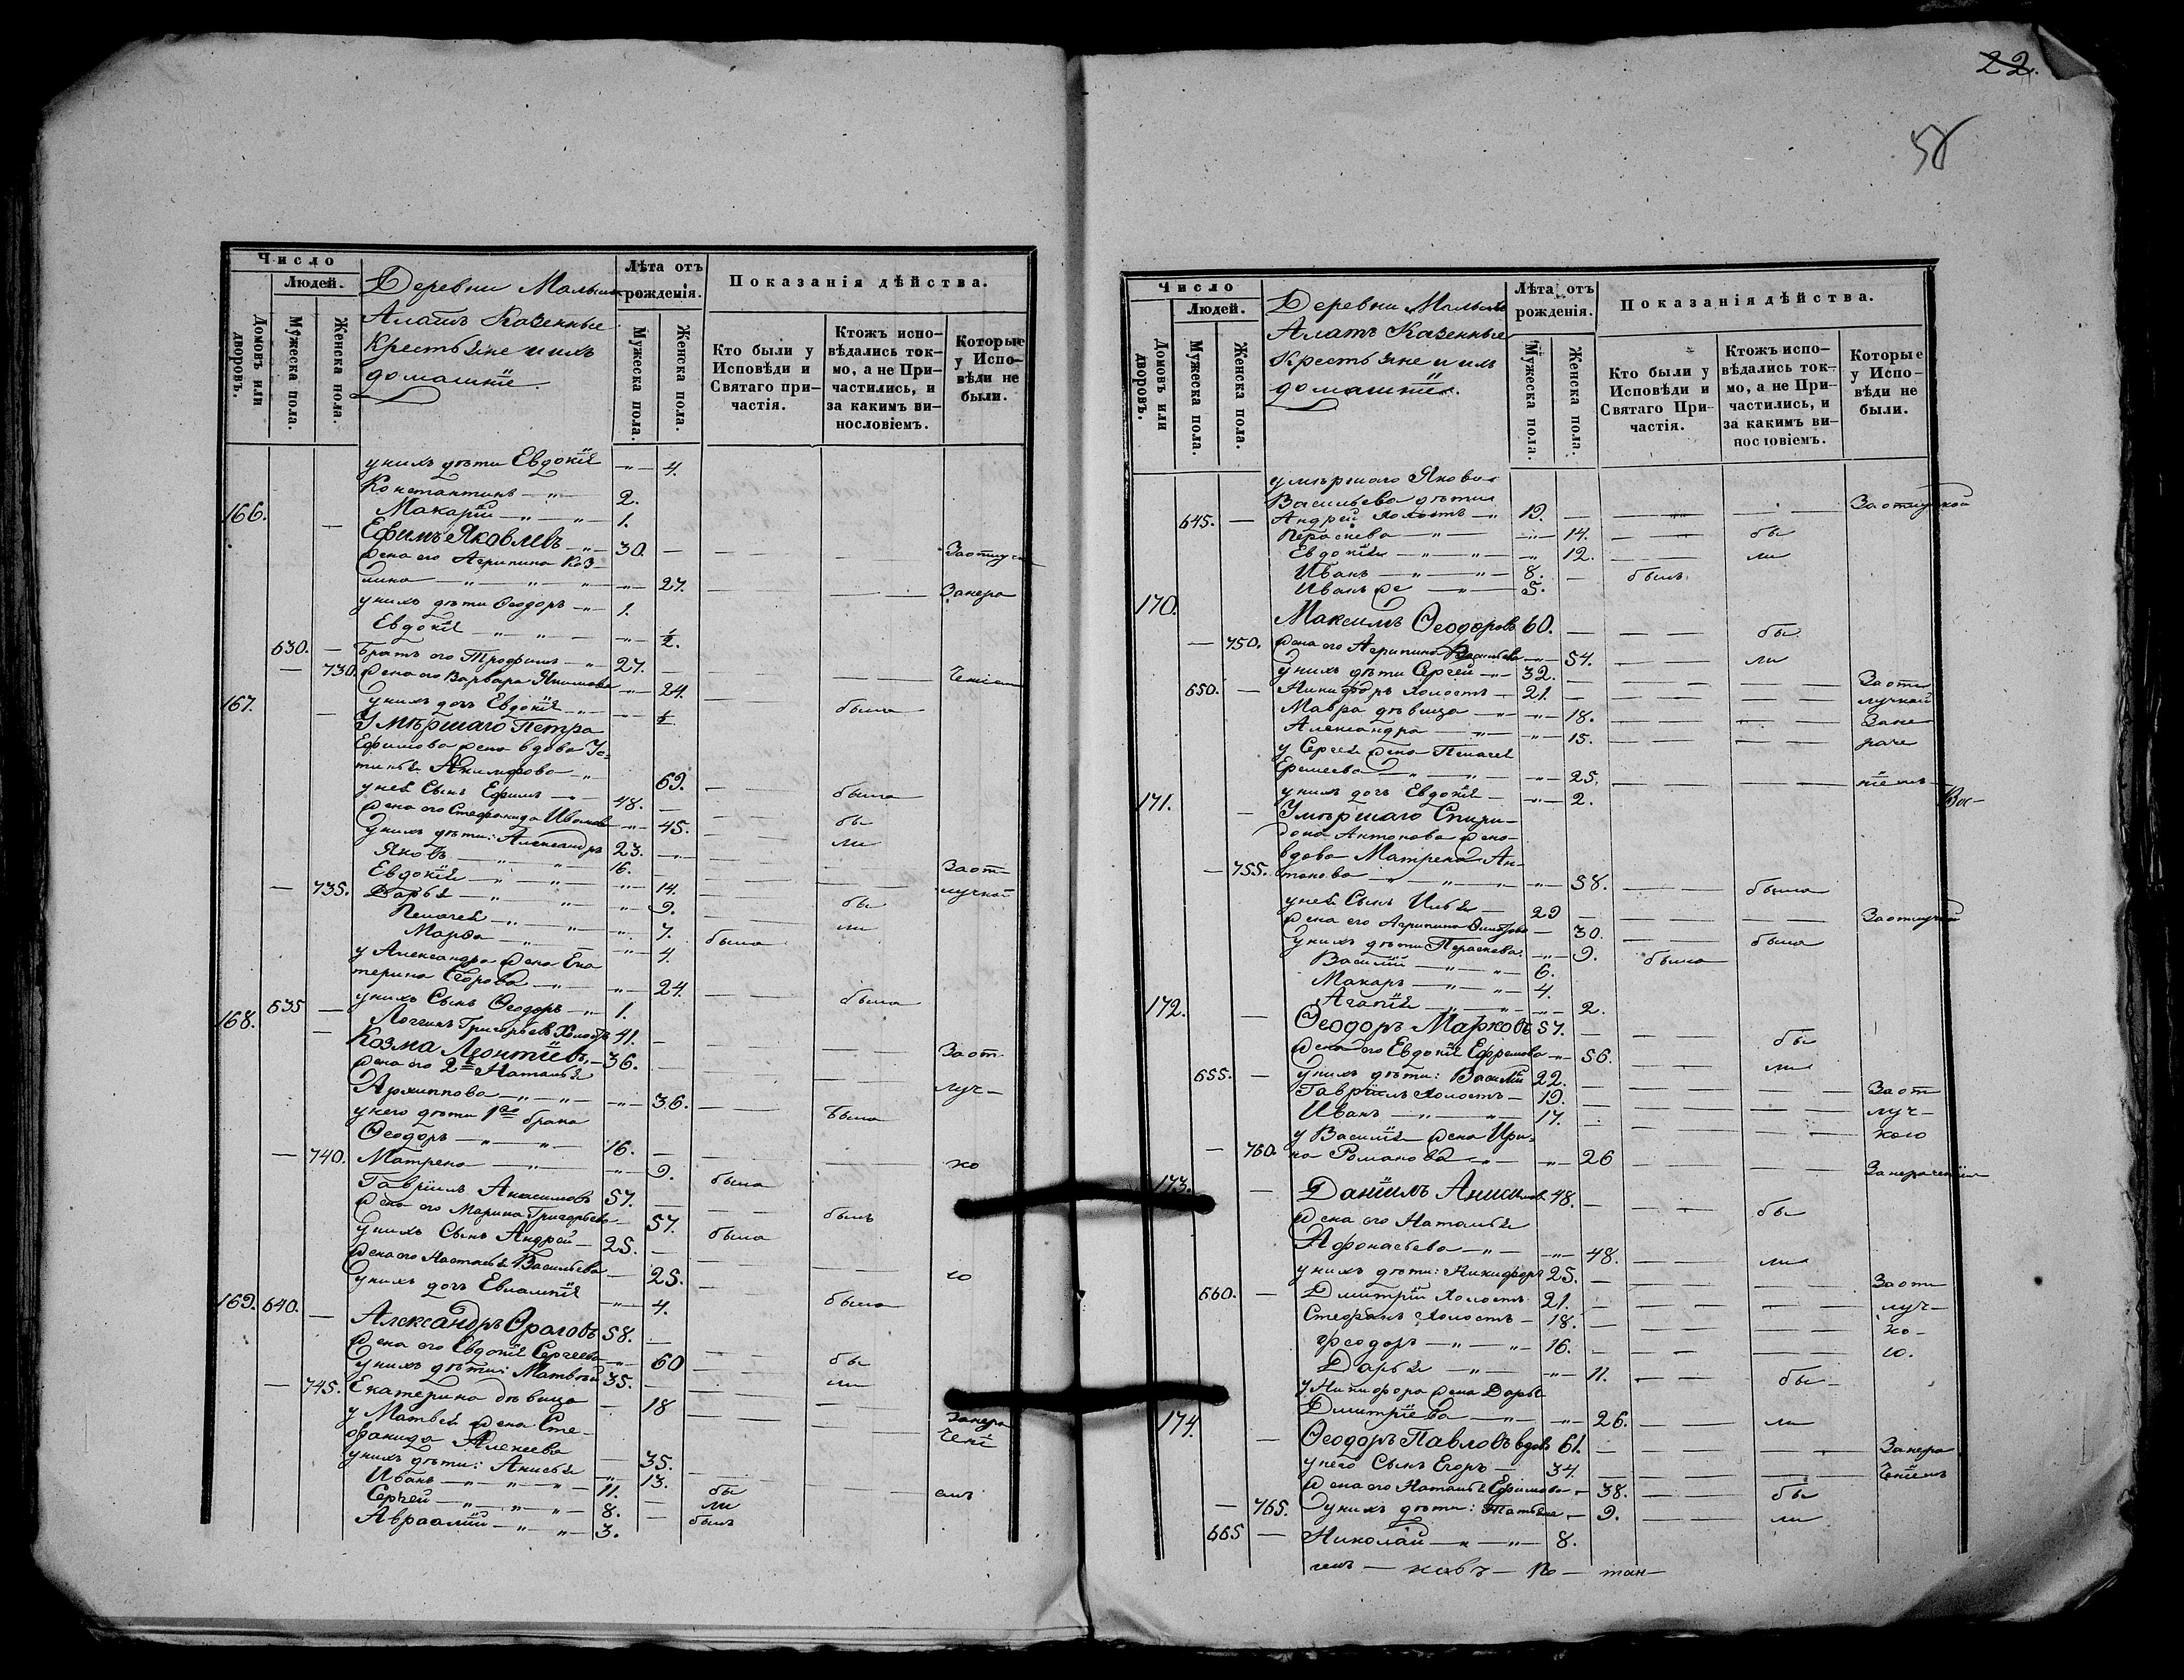 22.
58
Число
Людей.
Домовъ или дворовъ.
Мужеска пола.
Женска пола.
Деревни Малыхъ
Алатъ Казенные
Крестьяне и ихъ
домашніе.
Лѣта отъ рожденія.
Мужеска пола.
Женска пола.
Показанія дѣйства.
Кто были у Исповѣди и Святаго причастія.
Ктожъ исповѣдались токмо, а не Причастились, и за какимъ винословіемъ.
Которые у Исповѣди не были.
у нихъ дѣти Евдокія — 4.
Константинъ — 2.
166. Макарій — 1.
Ефимъ Яковлевъ — 30. —
Жена его Агрипина Коз- Заотлуч
мина — 27.
у нихъ дѣти Ѳеодоръ — 1. Занера
Евдокія — ½.
630. — Братъ его Трофимъ — 27.
— 730. Жена его Варвара Якимова — 24. Ченіем
167. у нихъ дочь Евдокія — ½. была
Умѣршаго Петра
Ефимова жена вдова Ус-
тинья Никифорова — 69. была
у ней Сынъ Ефимъ — 48. —
Жена его Стефанида Иванова — 45. бы
у нихъ дѣти: Александръ 23. — ли
Яковъ — 16. Заот
Евдокія — 14. лучкой
— 735. Дарья — 9. бы
Пелагея — 7. ли
Марѳа — 4. была
у Александра жена Ека
терина Егорова — 24. была
635 — у нихъ Сынъ Ѳеодоръ — 1.
168. Логгинъ Григорьевъ Холостъ 41. —
Козма Леонтіевъ — 36. Заот
Жена его 2я Наталья
Архиппова — 36. луч-
у него дѣти 1го брака была
Ѳеодоръ — 16. —
— 740. Матрена — 9. была ко
Гавріилъ Анисимовъ 57. —
Жена его Марина Григорьева 57. былъ
у нихъ Сынъ Андрей — 25. — была
Жена его Настасья Васильева — 25. ю
у нихъ дочь Евлампія — 4. была
169. 640. — Александръ Фроловъ 58. —
Жена его Евдокія Сергеева — 60 бы
у нихъ дѣти: Матвѣй 35. — ли
— 745. Екатерина дѣвица — 18
у Матвея жена Сте- Занера
фанида Алексеева — 35. Чені
у нихъ дѣти: Анисья — 13.
Иванъ — 11. — бы емъ
Сергей — 8. — ли
Авраамій — 3. былъ
Число
Людей.
Домовъ или дворовъ.
Мужеска пола.
Женска пола.
Деревни Малыхъ
Алатъ Казенные
Крестьяне и ихъ
домашніе.
Лѣта отъ рожденія.
Мужеска пола.
Женска пола.
Показанія дѣйства.
Кто были у Исповѣди и Святаго Причастія.
Ктожъ исповѣдались токмо, а не Причастились, и за какимъ винословіемъ.
Которые у Исповѣди не были.
умѣршаго Якова
Васильева дѣти
645. — Андрей Холостъ — 19. — Заотлучкой
Пераскева — 14. бы
Евдокія — 12. ли
Иванъ — 8. — былъ
Иванъ же — 5.
170. Максимъ Ѳеодоровъ 60. — бы
— 750. Жена его Агрипина Васильева — 54. ли
у нихъ дѣти Сергей — 32. — Заот
650. — Никифоръ Холостъ — 21. — лучкой
Мавра дѣвица — 18. Зане
Александра — 15. раче
у Сергея жена Пелагея
Еремеева — 25. ніемъ
у нихъ дочь Евдокія — 2.
171. Умѣршаго Спири- Вос-
дона Антонова жена
вдова Матрена Ан-
— 755. тонова — 58. была
у ней Сынъ Илья — 29 — Заотлучкой
Жена его Агрипина — 30. была
у нихъ дѣти Пераскева — 9. была
Василій — 6.
Макаръ — 4.
Агапія — 2.
172. Ѳеодоръ Марковъ 57. — бы
Жена его Евдокія Ефремова — 56. ли
655. — у нихъ дѣти: Василій 22. — Заот
Гавріилъ Холостъ — 19. — луч-
Иванъ — 17. — кою
у Василія жена Ири-
— 760. на Романова — 26 Занераченіем
173. Даніилъ Анисимовъ 48. — бы
Жена его Наталья
Афонасьева — 48. ли
у нихъ дѣти: Никифоръ 25. — Заот
660. — Димитрій Холостъ 21. — луч-
Стефанъ Холостъ — 18. — ко-
Ѳеодоръ — 16. — ю.
Дарья — 11. бы-
у Никифора жена Дарья
Дмитріева — 26. ли
174. Ѳеодоръ Павловъ вдовъ 61. — Занера
у него Сынъ Егоръ — 34. — Ченіемъ
Жена его Наталья Ефимова — 38. бы
— 765. у нихъ дѣти: Татьяна — 9. ли
665 — Николай — 8.